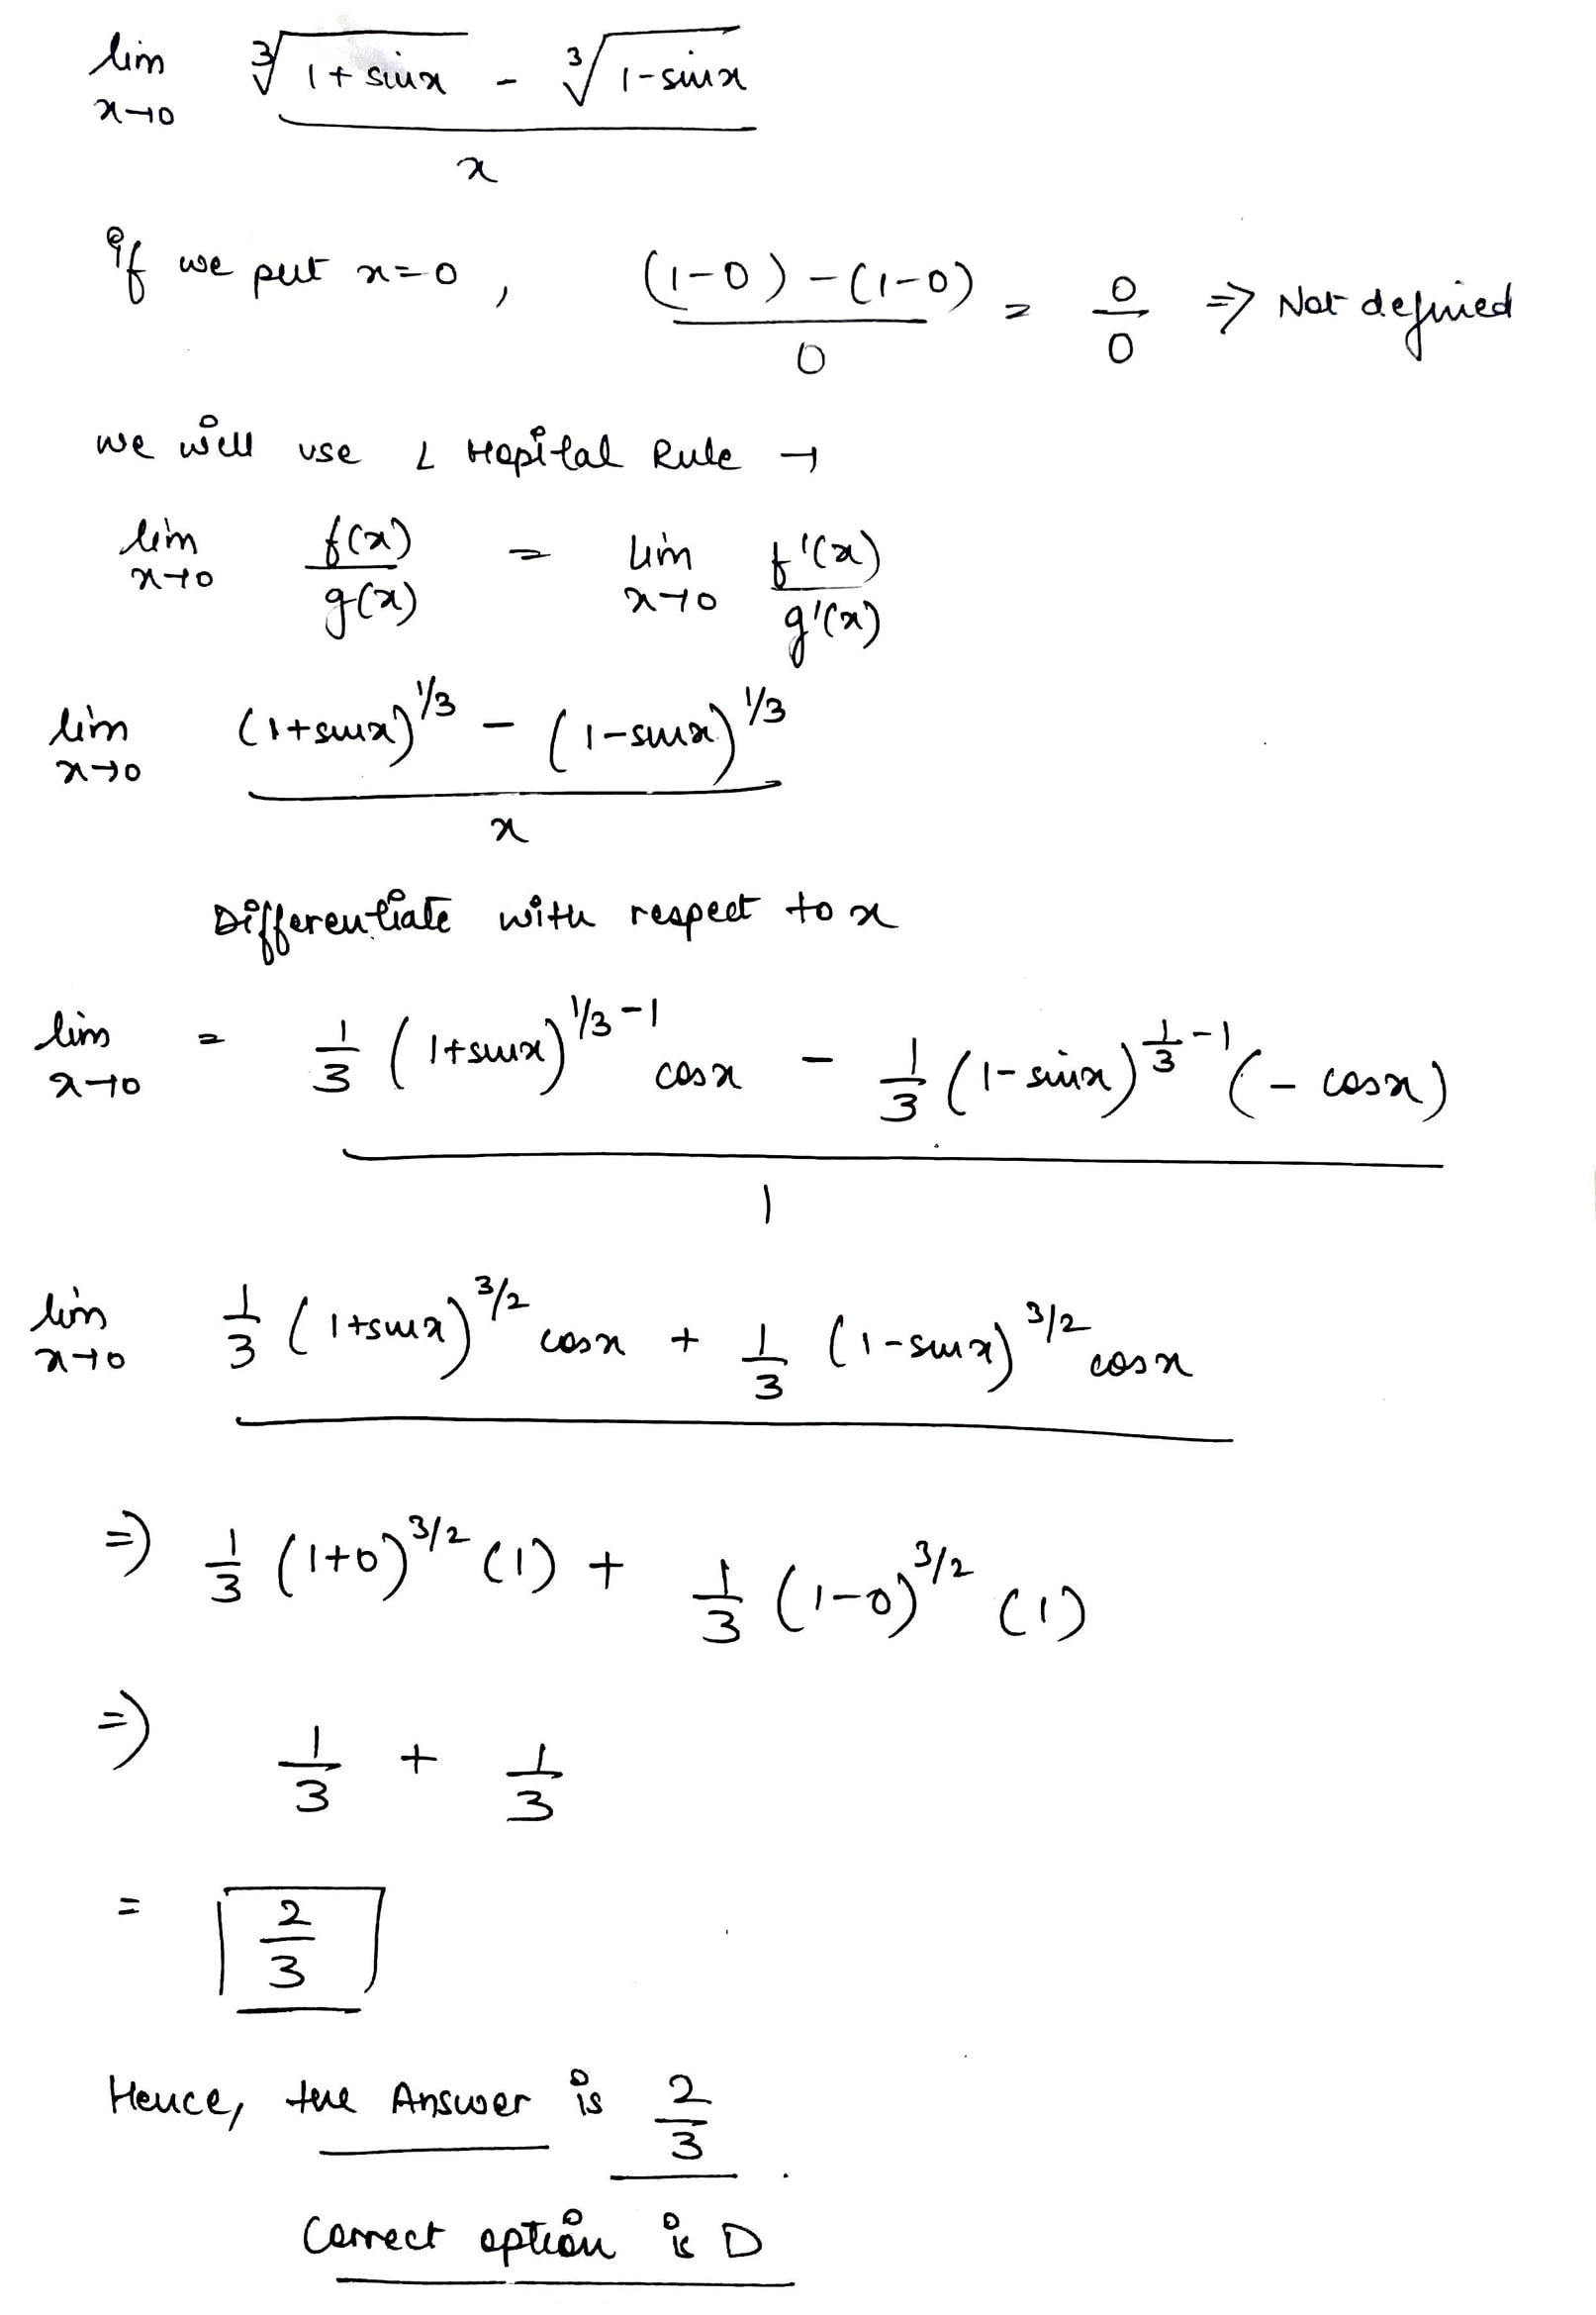 lim x→0 (∛(1+sinx) - ∛(1-sinx)) / x
if we put x=0, ((1-0)-(1-0)) / 0 = 0/0 ⇒ Not defined
we will use L Hopital Rule →
lim x→0 f(x)/g(x) = lim x→0 f'(x)/g'(x)
lim x→0 ((1+sinx)^1/3 - (1-sinx)^1/3) / x
Differentiate with respect to x
lim x→0 = (1/3 (1+sinx)^(1/3-1) cosx - 1/3 (1-sinx)^(1/3-1) (-cosx)) / 1
lim x→0 1/3 (1+sinx)^3/2 cosx + 1/3 (1-sinx)^3/2 cosx
⇒ 1/3 (1+0)^3/2 (1) + 1/3 (1-0)^3/2 (1)
⇒ 1/3 + 1/3
= 2/3
Hence, the Answer is 2/3.
Correct option is D